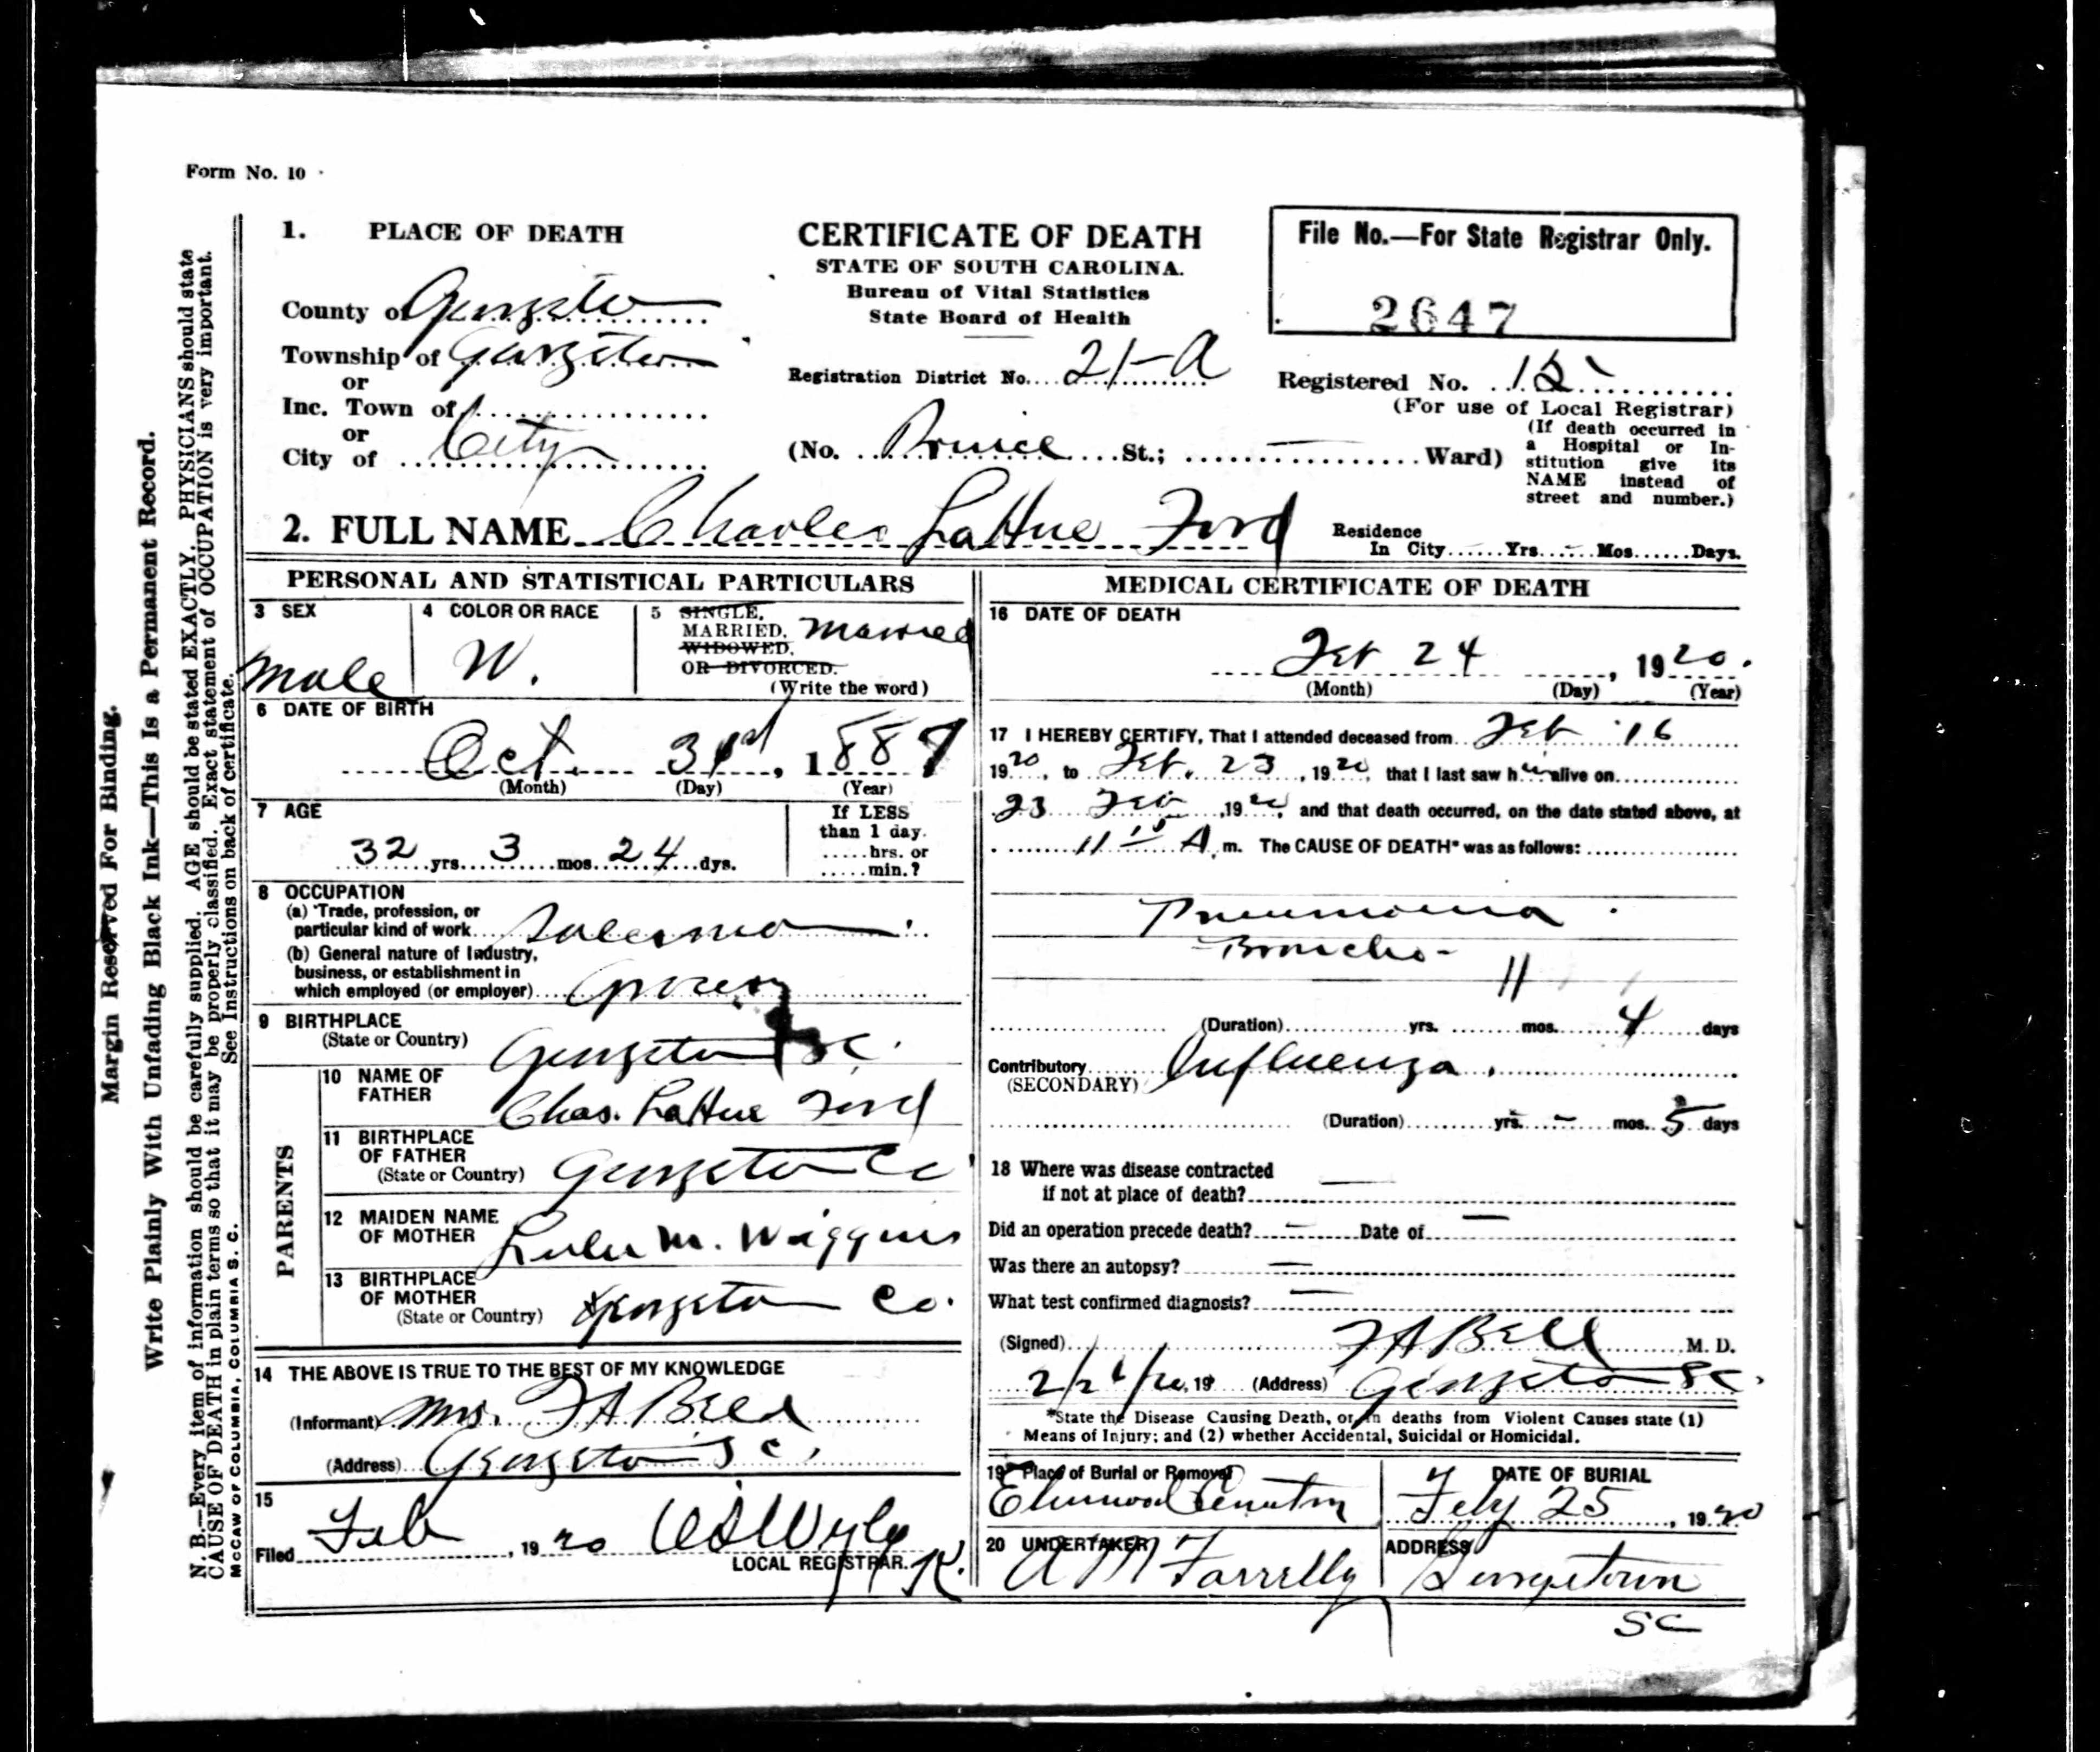 Form No. 10
1. PLACE OF DEATH
County of Georgetown
Township of Georgetown
or
Inc. Town of
or
City of City
CERTIFICATE OF DEATH
STATE OF SOUTH CAROLINA.
Bureau of Vital Statistics
State Board of Health
Registration District No. 21-A
(No. Prince St.; — Ward)
File No.—For State Registrar Only.
2647
Registered No. 15
(For use of Local Registrar)
(If death occurred in
a Hospital or In-
stitution give its
NAME instead of
street and number.)
2. FULL NAME Charles LaHue Ford
Residence
In City Yrs. - Mos Days.
PERSONAL AND STATISTICAL PARTICULARS
3 SEX
Male
4 COLOR OR RACE
W.
5 SINGLE,
MARRIED, Married
WIDOWED,
OR DIVORCED.
(Write the word)
6 DATE OF BIRTH
Oct. 31st, 1887
(Month) (Day) (Year)
7 AGE
32 yrs. 3 mos. 24 dys.
If LESS
than 1 day.
hrs. or
min.?
8 OCCUPATION
(a) Trade, profession, or
particular kind of work Salesman
(b) General nature of Industry,
business, or establishment in
which employed (or employer) Grocery
9 BIRTHPLACE
(State or Country) Georgetown SC.
PARENTS
10 NAME OF
FATHER Chas. LaHue Ford
11 BIRTHPLACE
OF FATHER
(State or Country) Georgetown Co
12 MAIDEN NAME
OF MOTHER M. Wiggins
13 BIRTHPLACE
OF MOTHER
(State or Country) Georgetown Co.
14 THE ABOVE IS TRUE TO THE BEST OF MY KNOWLEDGE
(Informant) Mrs. F A Bell
(Address) Georgetown S C.
15
Filed Feb, 1920
LOCAL REGISTRAR. K.
MEDICAL CERTIFICATE OF DEATH
16 DATE OF DEATH
Feb 24, 1920.
(Month) (Day) (Year)
17 I HEREBY CERTIFY, That I attended deceased from Feb 16
1920, to Feb. 23, 1920, that I last saw him alive on
23 Feb, 1920, and that death occurred, on the date stated above, at
11 15 A. m. The CAUSE OF DEATH* was as follows:
Pneumonia
Broncho-
11
(Duration) yrs. mos. 4 days
Contributory Influenza.
(SECONDARY)
(Duration) yrs. - mos. 5 days
18 Where was disease contracted
if not at place of death? —
Did an operation precede death? — Date of —
Was there an autopsy? —
What test confirmed diagnosis? —
(Signed) F A Bell M. D.
19 (Address) Georgetown SC.
*State the Disease Causing Death, or, in deaths from Violent Causes state (1)
Means of Injury; and (2) whether Accidental, Suicidal or Homicidal.
19 Place of Burial or Removal
Elmwood Cemetery
DATE OF BURIAL
Feby 25, 1920
20 UNDERTAKER
A M Farrelly
ADDRESS
Georgetown
SC
Margin Reserved For Binding.
Write Plainly With Unfading Black Ink—This Is a Permanent Record.
N. B.—Every item of information should be carefully supplied. AGE should be stated EXACTLY. PHYSICIANS should state
CAUSE OF DEATH in plain terms so that it may be properly classified. Exact statement of OCCUPATION is very important.
See Instructions on back of certificate.
McCAW OF COLUMBIA, COLUMBIA S. C.